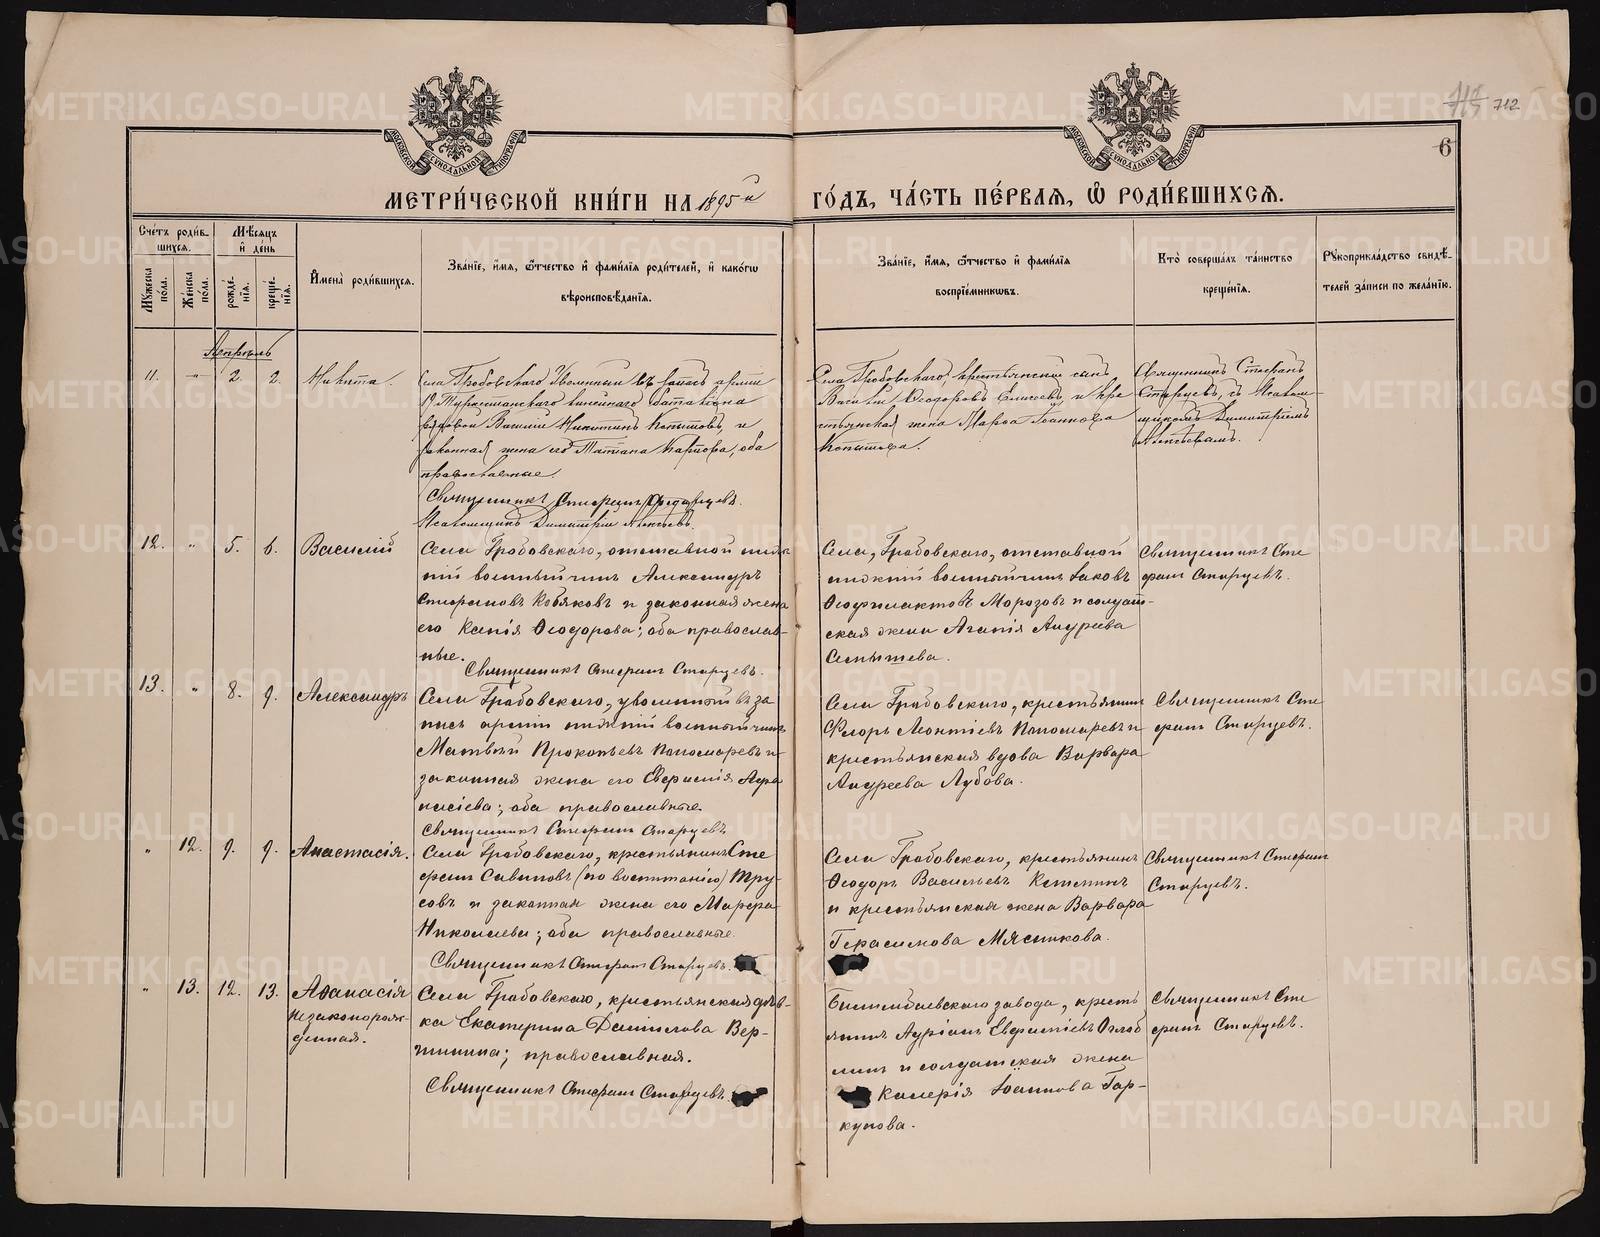 712
6
МОСКОВСКОЙ СѴНОДАЛЬНОЙ ТИПОГРАФІИ
МОСКОВСКОЙ СѴНОДАЛЬНОЙ ТИПОГРАФІИ
МЕТРИ́ЧЕСКОЙ КНИ́ГИ НА 1895й ГО́ДЪ, ЧА́СТЬ ПЕ́РВАЯ, Ѽ РОДИ́ВШИХСЯ.
Сче́тъ роди́в-
шихся.
Мꙋ́жеска по́ла.
Же́нска по́ла.
Мѣ́сяцъ
и де́нь
рожде́нія.
креще́нія.
Имена̀ роди́вшихся.
Зва́ніе, и́мя, ѻ҆́тчество и фами́лія роди́телей, и како́гѡ
вѣроисповѣ́данія.
Зва́ніе, и́мя, ѻ҆́тчество и фами́лія
воспріе́мникѡвъ.
Кто̀ соверша́лъ та́инство
креще́нія.
Рꙋкоприкла́дство свидѣ́-
телей за́писи по жела́нію.
Апрѣль
11. " 2. 2. Никита.
Села Гробовскаго Уволенный въ запасъ арміи
19 Туркестанскаго линейнаго баталіона
рядовой Василій Никитинъ Копытовъ, и
законная жена его Татіана Карпова, оба
православные.
Священникъ Стефанъ Старцевъ.
Псаломщикъ Димитрій
Села Гробовскаго, крестьянскій сынъ
Василій Ѳеодоровъ и кре
стьянская жена Марѳа Іоаннова
Копытова.
Священникъ Стефанъ
Старцевъ, съ Псалом-
щикомъ Димитріемъ
12. " 5. 6. Василій
Села Гробовскаго, отставной ниж
ній военный чинъ Александръ
Стефановъ Кобяковъ и законная жена
его Ксенія Ѳеодорова; оба православ-
ные.
Священникъ Стефанъ Старцевъ.
Села, Гробовскаго, отставной
нижній военный чинъ Іаковъ
Ѳеофилактовъ Морозовъ и солдат-
ская жена Агапія Андреева
Священникъ Сте
фанъ Старцевъ.
13. " 8. 9. Александръ
Села Гробовскаго, уволенный въ за
пасъ арміи нижній военный чинъ
Матвѣй Прокопьевъ Пономаревъ и
законная жена его Евфимія Аѳа
насіева; оба православные.
Священникъ Стефанъ Старцевъ
Села Гробовскаго, крестьянинъ
Флоръ Леонтіевъ Пономаревъ и
крестьянская вдова Варвара
Андреева Лубова.
Священникъ Сте
фанъ Старцевъ.
" 12. 9. 9. Анастасія.
Села Гробовскаго, крестьянинъ Сте
фанъ Савиновъ (по воспитанію) Тру-
совъ и законная жена его Марѳа
Николаева; оба православные.
Священникъ Стефанъ Старцевъ.
Села Гробовскаго, крестьянинъ
Ѳеодоръ Васильевъ
и крестьянская жена Варвара
Герасимова Мясникова.
Священникъ Стефанъ
Старцевъ.
" 13. 12. 13. Аѳанасія
незаконорож-
денная.
Села Гробовскаго, крестьянская дѣв-
ка Екатерина Даніилова Вер-
шинина; православная.
Священникъ Стефанъ Старцевъ.
Билимбаевскаго завода, кресть
янинъ Адріанъ Евфиміевъ Оглоб
линъ и солдатская жена
Калерія Іоаннова Гор-
кунова.
Священникъ Сте
фанъ Старцевъ.
METRIKI.GASO-URAL.RU